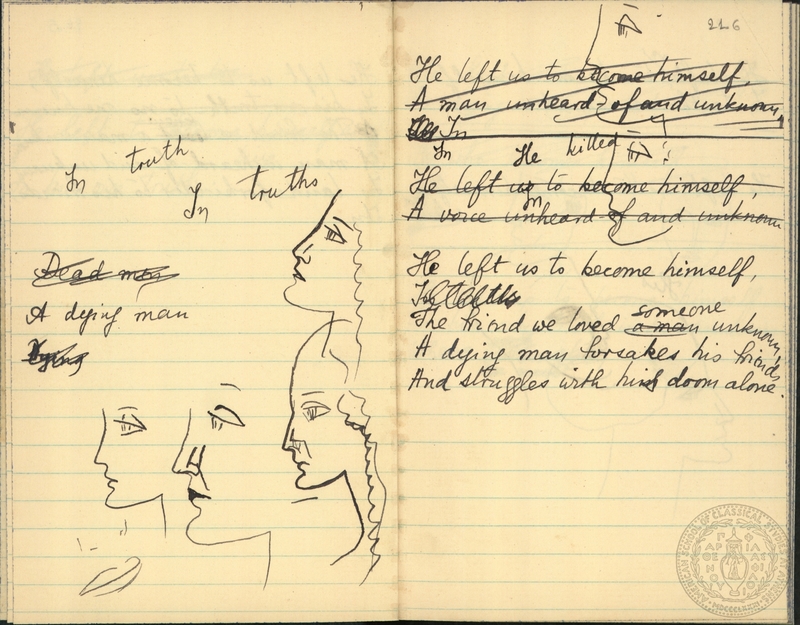 In truth
In truths
Dead man
A dying man
Dying
216
He left us to become himself,
A man unheard of and unknown,
In
In He killed
He left us to become himself,
In
A voice unheard of and unknown
He left us to become himself,
someone
The friend we loved a man unknown,
A dying man forsakes his friends
And struggles with his doom alone.
AMERICAN SCHOOL OF CLASSICAL STUDIES AT ATHENS
MDCCCLXXXI